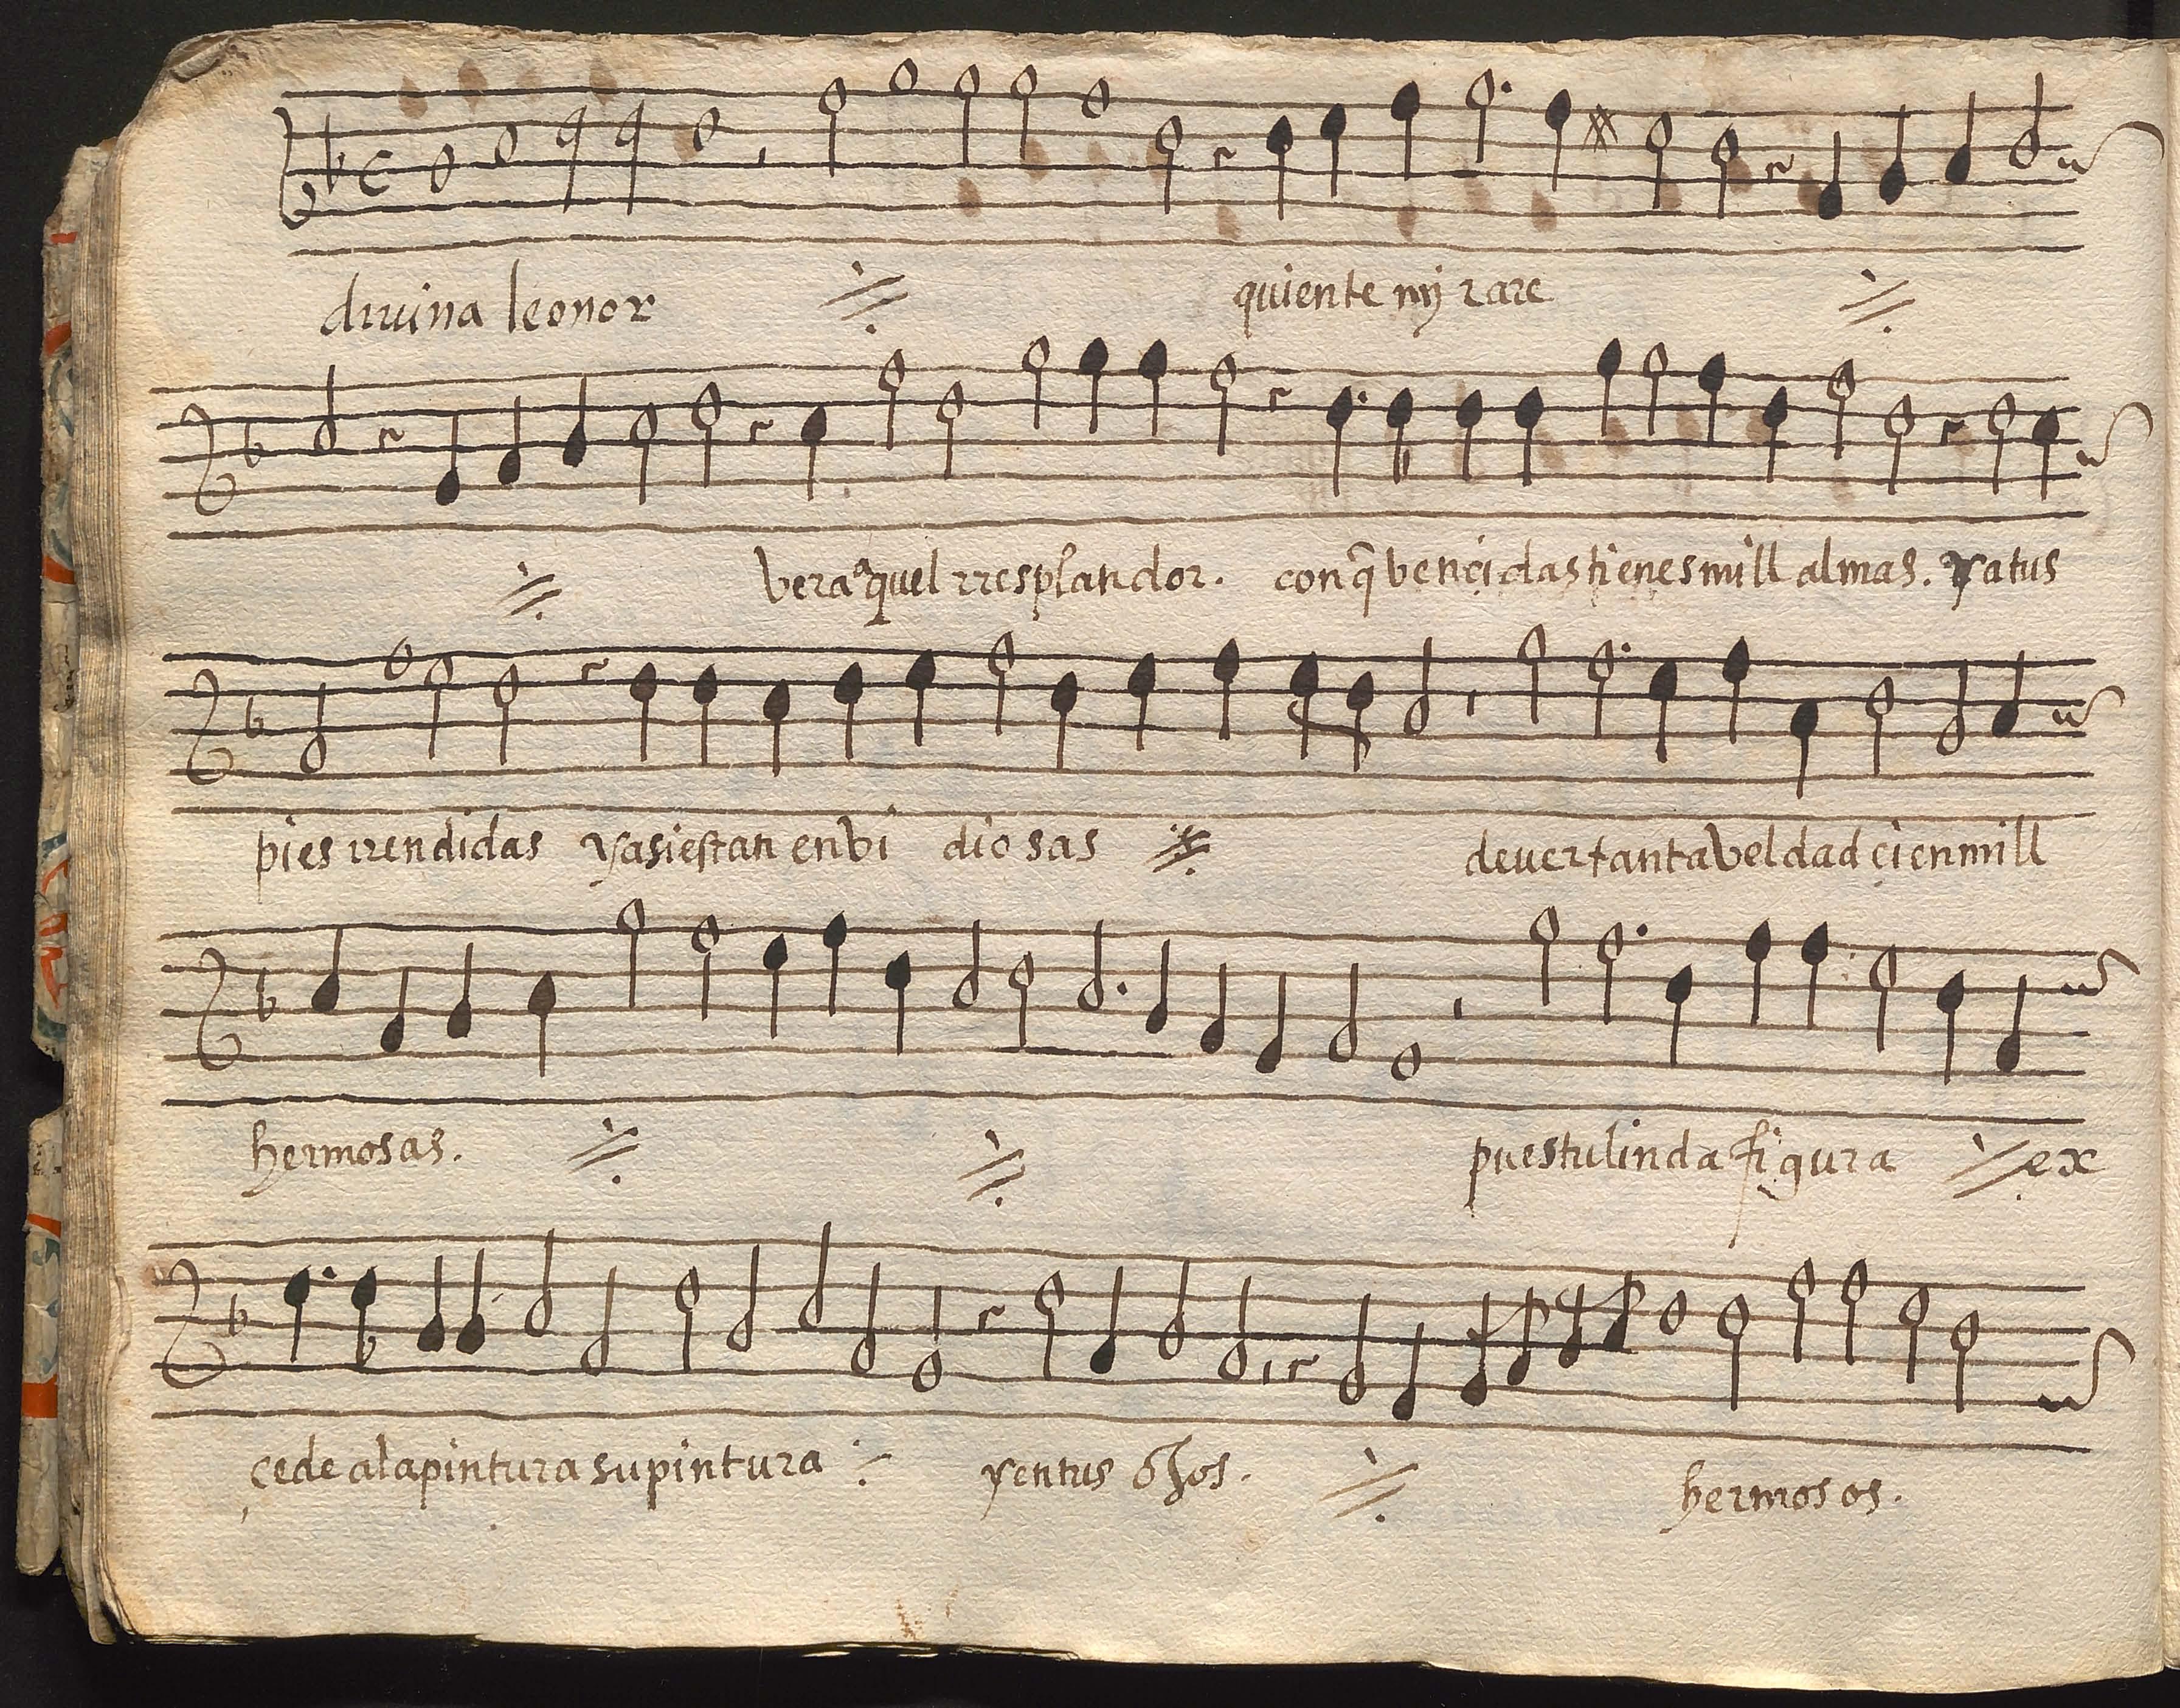 divina leonor quiente mj rare
vera aquel rresplandor. conq̃ vençidas tienes mill almas. yatus
pies rrendidas yasiestan enbi diosas dever tanta veldad çien mill
hermosas. pues tu linda figura ex
çede alapintura su pintura yentus ojos. hermosos.